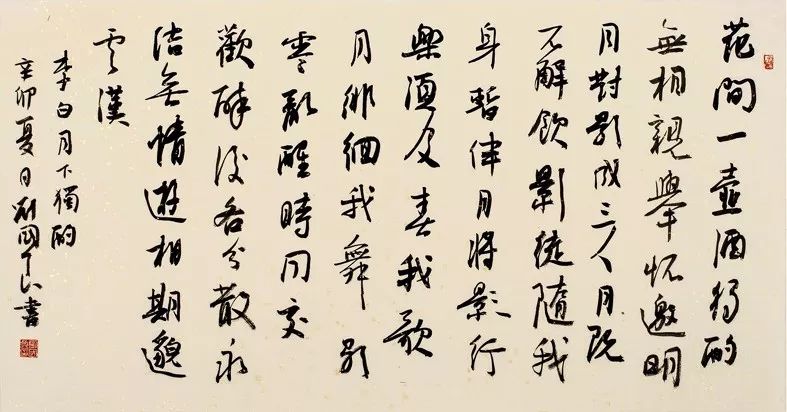 花間一壺酒獨酌
無相親舉杯邀明
月對影成三人月既
不解飲影徒隨我
身暫伴月將影行
樂須及春我歌
月徘徊我舞影
零亂醒時同交
歡醉後各分散永
結無情遊相期邈
雲漢
李白月下獨酌
辛卯夏日國書